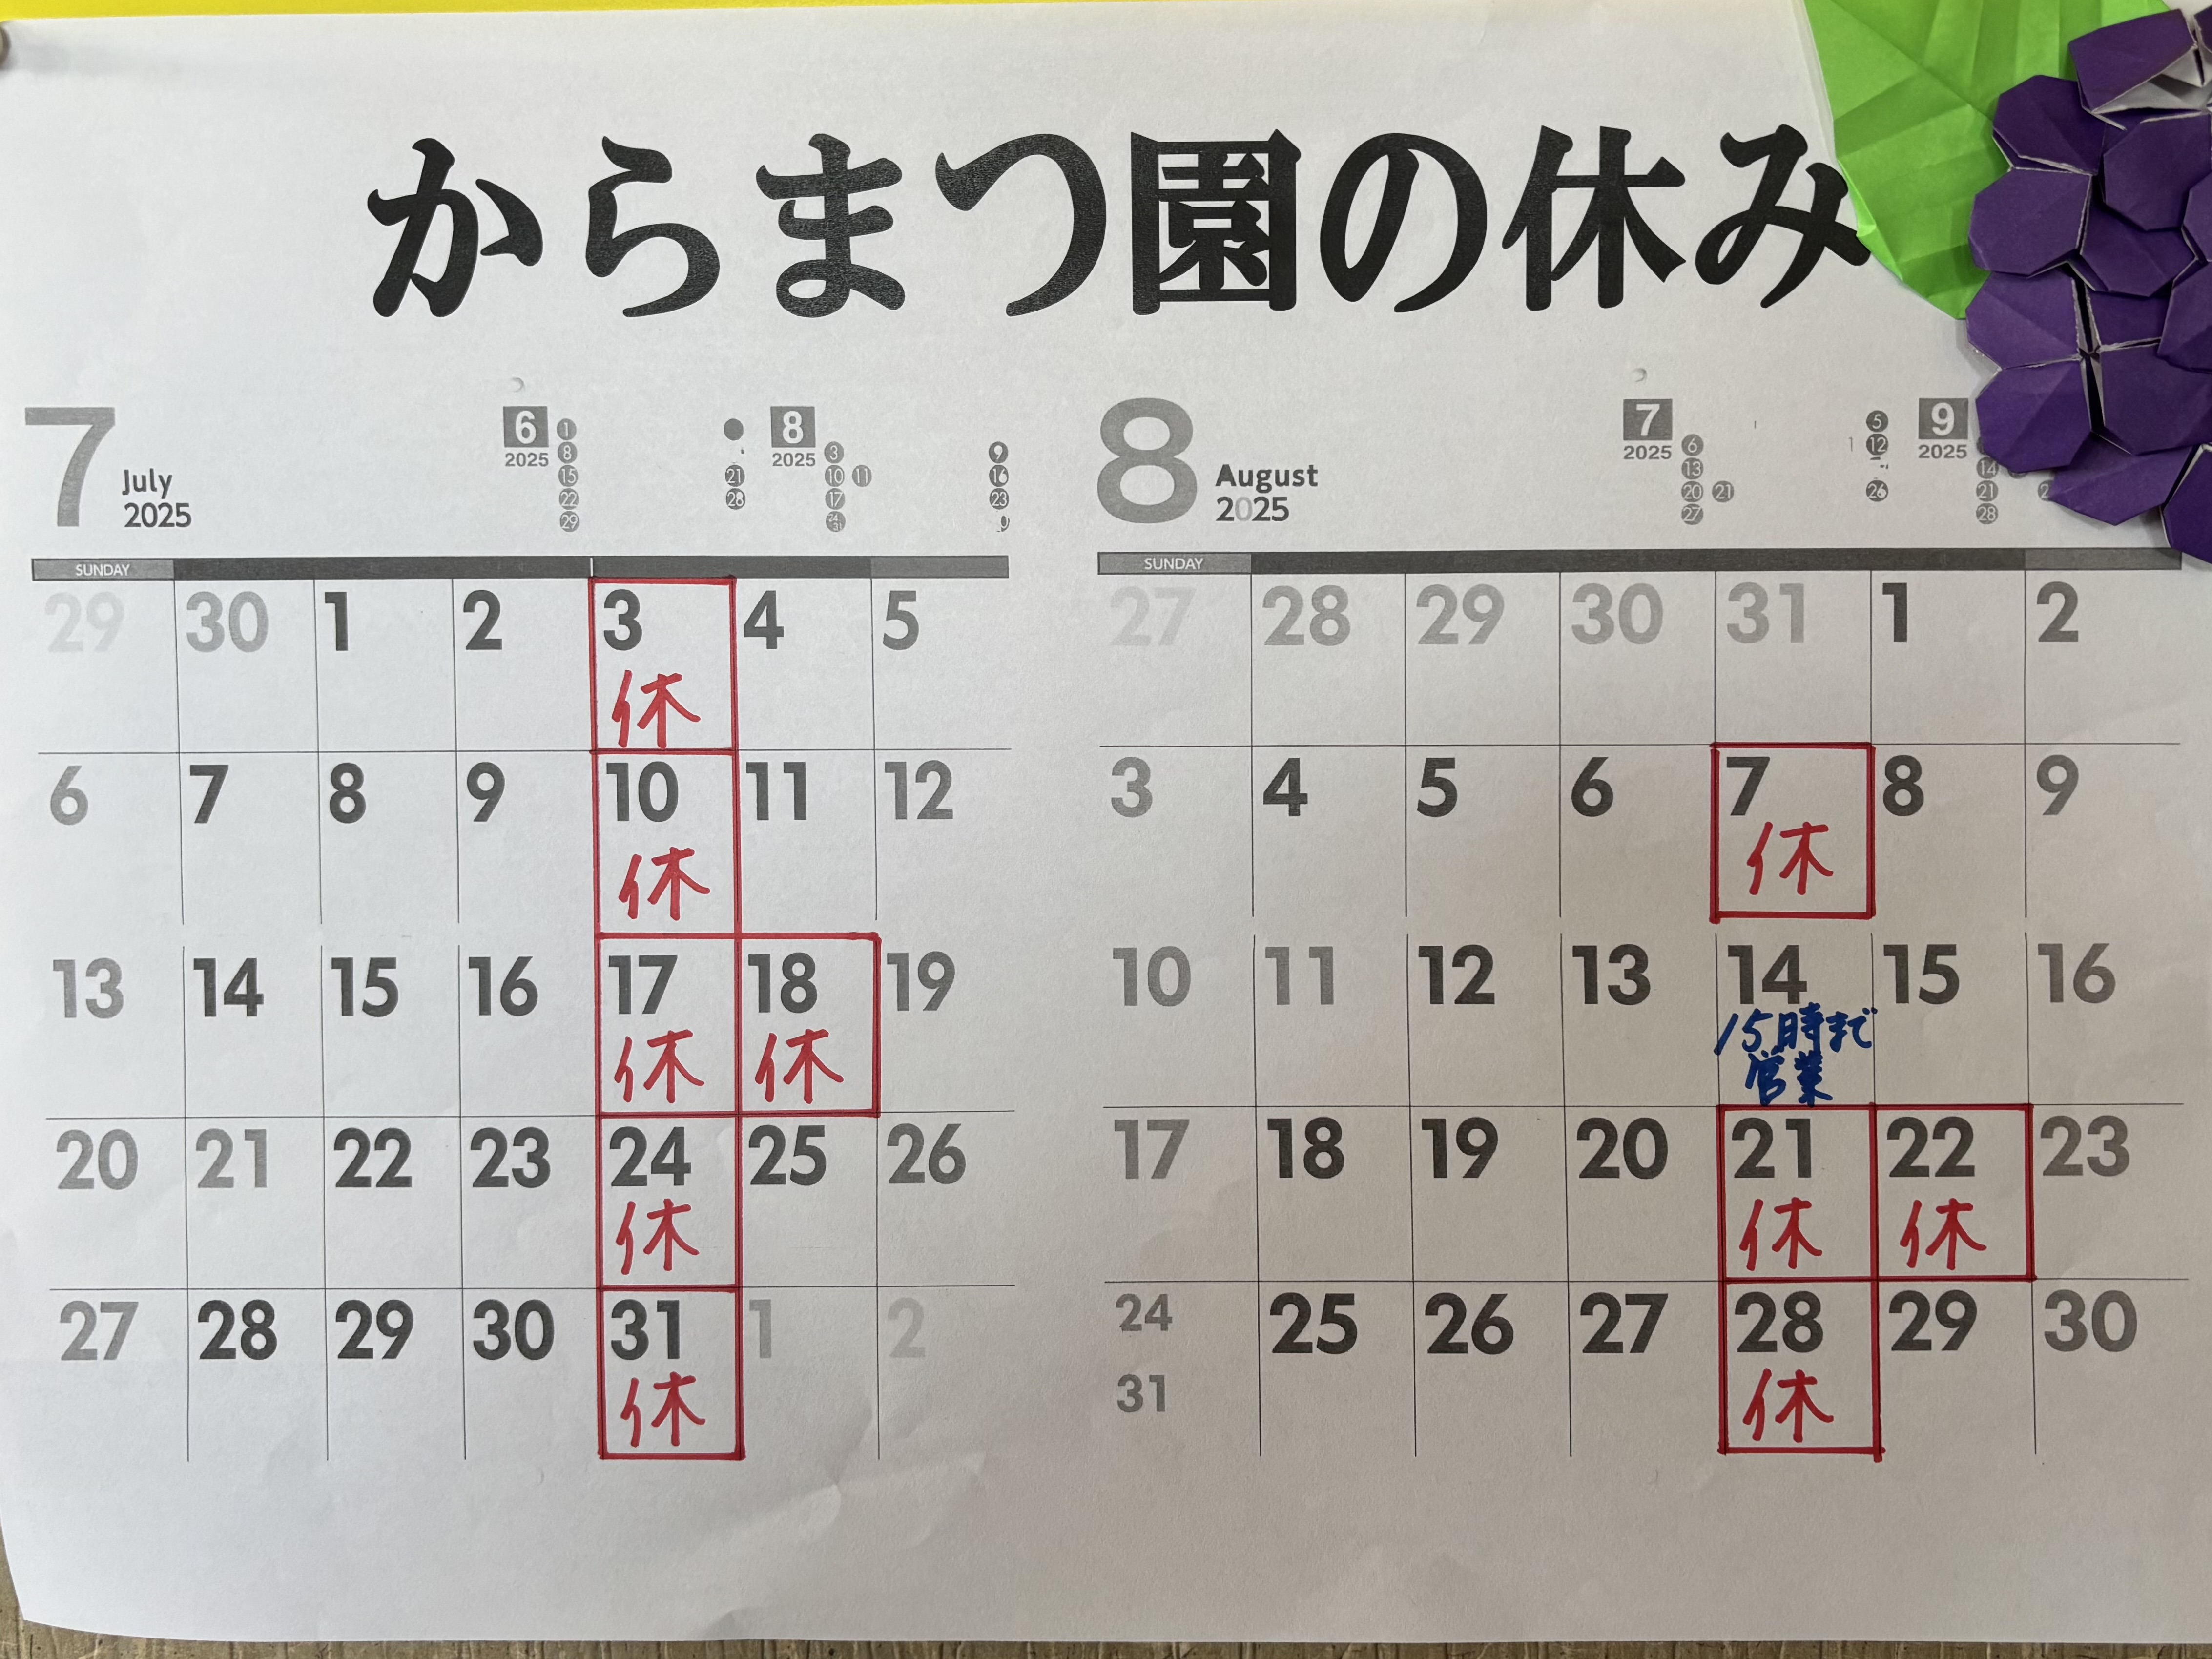 からまつ園の休み
7 July 2025
6 2025
1
8
15 21
22 28
29
8 2025
3 9
10 11 16
17 23
24
31
SUNDAY
29 30 1 2 3 4 5
休
6 7 8 9 10 11 12
休
13 14 15 16 17 18 19
休 休
20 21 22 23 24 25 26
休
27 28 29 30 31 1 2
休
8 August 2025
7 2025
5
6 12
13
20 21 26
27
9 2025
14
21
28
SUNDAY
27 28 29 30 31 1 2
3 4 5 6 7 8 9
休
10 11 12 13 14 15 16
15時まで
営業
17 18 19 20 21 22 23
休 休
24 25 26 27 28 29 30
31
休